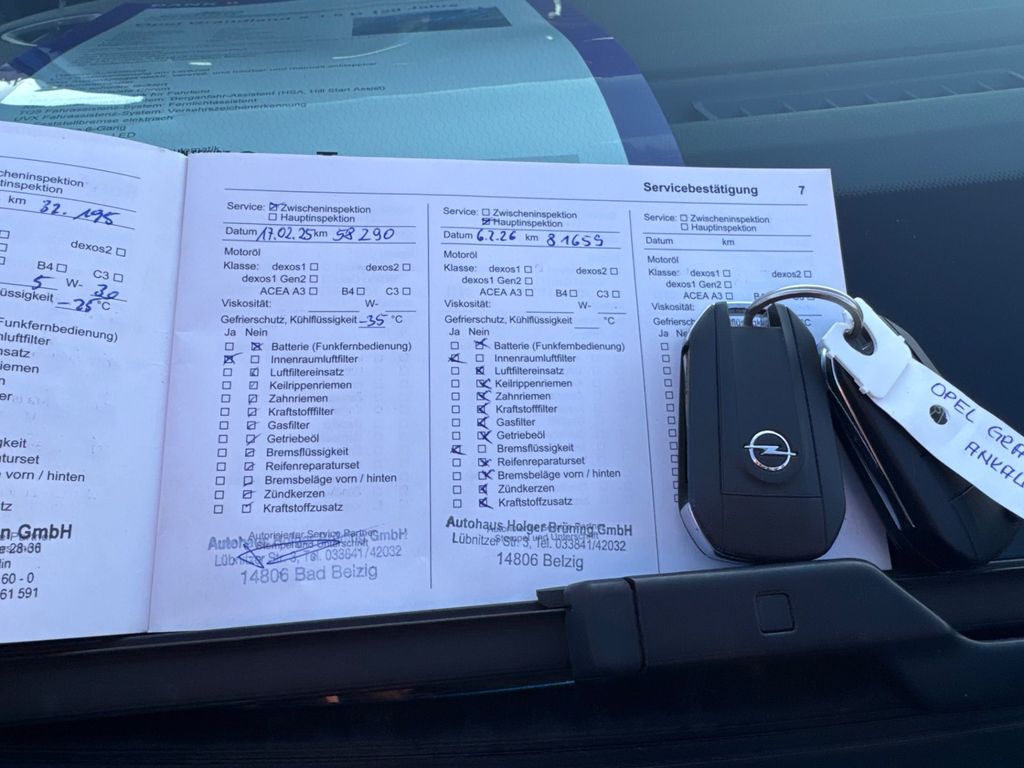 BANK
Opel Grandland X 1.5 D 120 Jahre
Berganfahr-Assistent (HSA, Hill Start Assist)
Fahrassistenz-System: Fernlichtassistent
UVX Fahrassistenz-System: Verkehrszeichenerkennung
Feststellbremse elektrisch
6-Gang
LED
km 32.195
dexos2 ☐
B4 ☐ C3 ☐
5 W- 30
-25 °C
Funkfernbedienung)
GmbH
28-36
60 - 0
61 591
Servicebestätigung 7
Service: ☒ Zwischeninspektion
☐ Hauptinspektion
Datum 17.02.25 km 58290
Motoröl
Klasse: dexos1 ☐ dexos2 ☐
dexos1 Gen2 ☐
ACEA A3 ☐ B4 ☐ C3 ☐
Viskosität: W-
Gefrierschutz, Kühlflüssigkeit -35 °C
Ja Nein
☐ ☒ Batterie (Funkfernbedienung)
☒ ☐ Innenraumluftfilter
☐ ☒ Luftfiltereinsatz
☐ ☒ Keilrippenriemen
☐ ☒ Zahnriemen
☐ ☒ Kraftstofffilter
☐ ☒ Gasfilter
☐ ☒ Getriebeöl
☐ ☒ Bremsflüssigkeit
☐ ☒ Reifenreparaturset
☐ ☒ Bremsbeläge vorn / hinten
☐ ☒ Zündkerzen
☐ ☒ Kraftstoffzusatz
Autorisierter Service Partner
Stempel und Unterschrift
GmbH
Lübnitzer Str. 5, Tel. 033841/42032
14806 Bad Belzig
Service: ☐ Zwischeninspektion
☒ Hauptinspektion
Datum 6.2.26 km 81659
Motoröl
Klasse: dexos1 ☐ dexos2 ☐
dexos1 Gen2 ☐
ACEA A3 ☐ B4 ☐ C3 ☐
Viskosität: W-
Gefrierschutz, Kühlflüssigkeit °C
Ja Nein
☐ ☒ Batterie (Funkfernbedienung)
☒ ☐ Innenraumluftfilter
☐ ☒ Luftfiltereinsatz
☐ ☒ Keilrippenriemen
☐ ☒ Zahnriemen
☐ ☒ Kraftstofffilter
☐ ☒ Gasfilter
☐ ☒ Getriebeöl
☒ ☐ Bremsflüssigkeit
☐ ☒ Reifenreparaturset
☐ ☒ Bremsbeläge vorn / hinten
☐ ☒ Zündkerzen
☐ ☒ Kraftstoffzusatz
Autohaus Holger Brüning GmbH
Stempel und Unterschrift
Lübnitzer Str. 5, Tel. 033841/42032
14806 Belzig
Service: ☐ Zwischeninspektion
☐ Hauptinspektion
Datum km
Motoröl
Klasse: dexos1 ☐ dexos2 ☐
dexos1 Gen2 ☐
ACEA A3 ☐
Viskosität:
Gefrierschutz
Ja
OPEL GRA
ANKAU